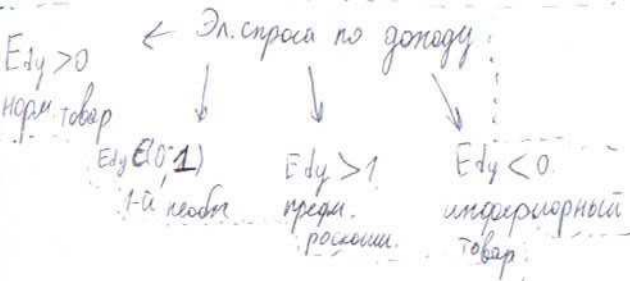 ← Эл. спроса по доходу
Edy > 0
норм. товар
Edy ∈ (0; 1)
1-й необх
Edy > 1
предм.
роскоши.
Edy < 0
инфериорный
товар